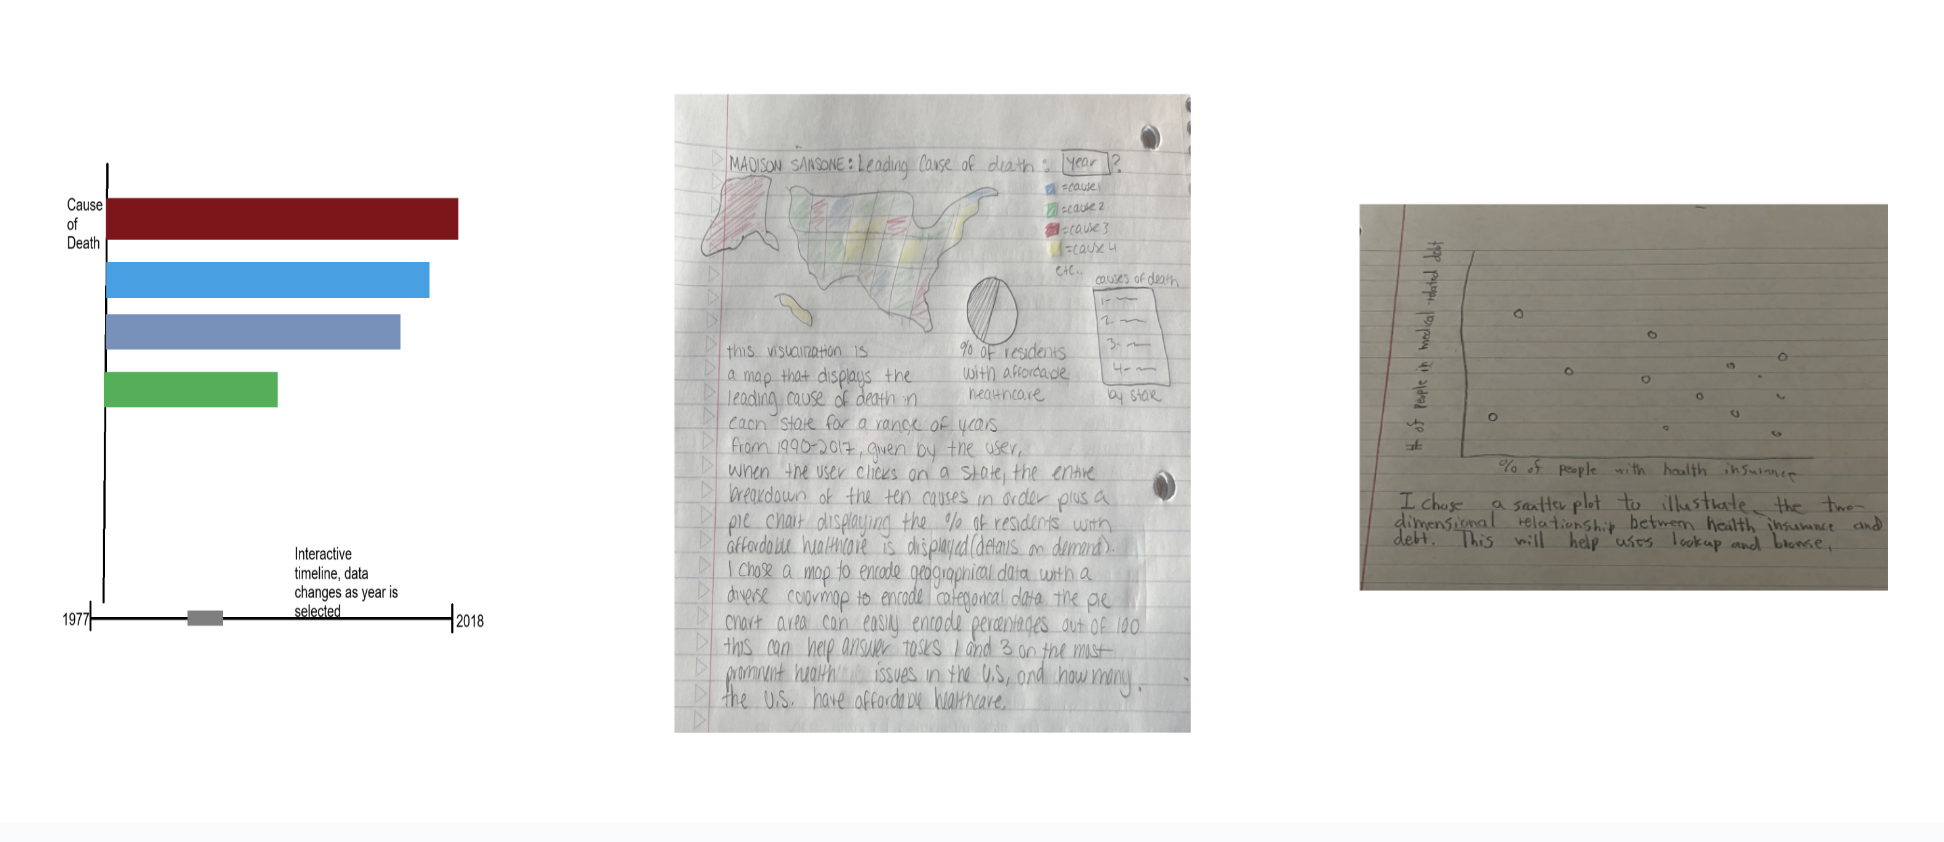 Cause
of
Death
Interactive
timeline, data
changes as year is
selected
1977
2018
MADISON SANSONE: Leading Cause of death: year?
=cause1
=cause2
=cause3
=cause4
etc..
causes of death
1-
2-
3-
4-
by state
% of residents
with affordable
healthcare
this visualization is
a map that displays the
leading cause of death in
each state for a range of years
from 1990-2017, given by the user,
when the user clicks on a state, the entire
breakdown of the ten causes in order plus a
pie chart displaying the % of residents with
affordable healthcare is displayed (details on demand).
I chose a map to encode geographical data with a
diverse colormap to encode categorical data. the pie
chart area can easily encode percentages out of 100
this can help answer tasks 1 and 3 on the most
prominent health issues in the U.S, and how many
the U.S. have affordable healthcare.
# of people in medical related debt
% of people with health insurance
I chose a scatter plot to illustrate the two-
dimensional relationship between health insurance and
debt. This will help users lookup and browse.